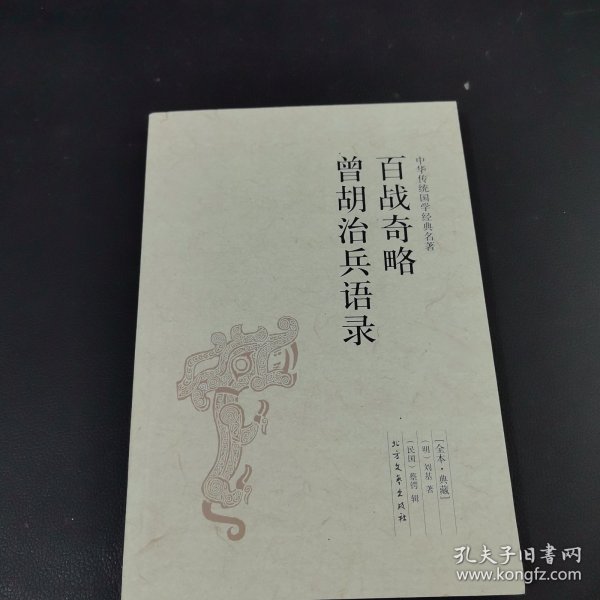 中华传统国学经典名著
百战奇略
曾胡治兵语录
［全本·典藏］
（明）刘基 著
（民国）蔡锷 辑
北方文艺出版社
孔夫子旧书网
www.kongfz.com